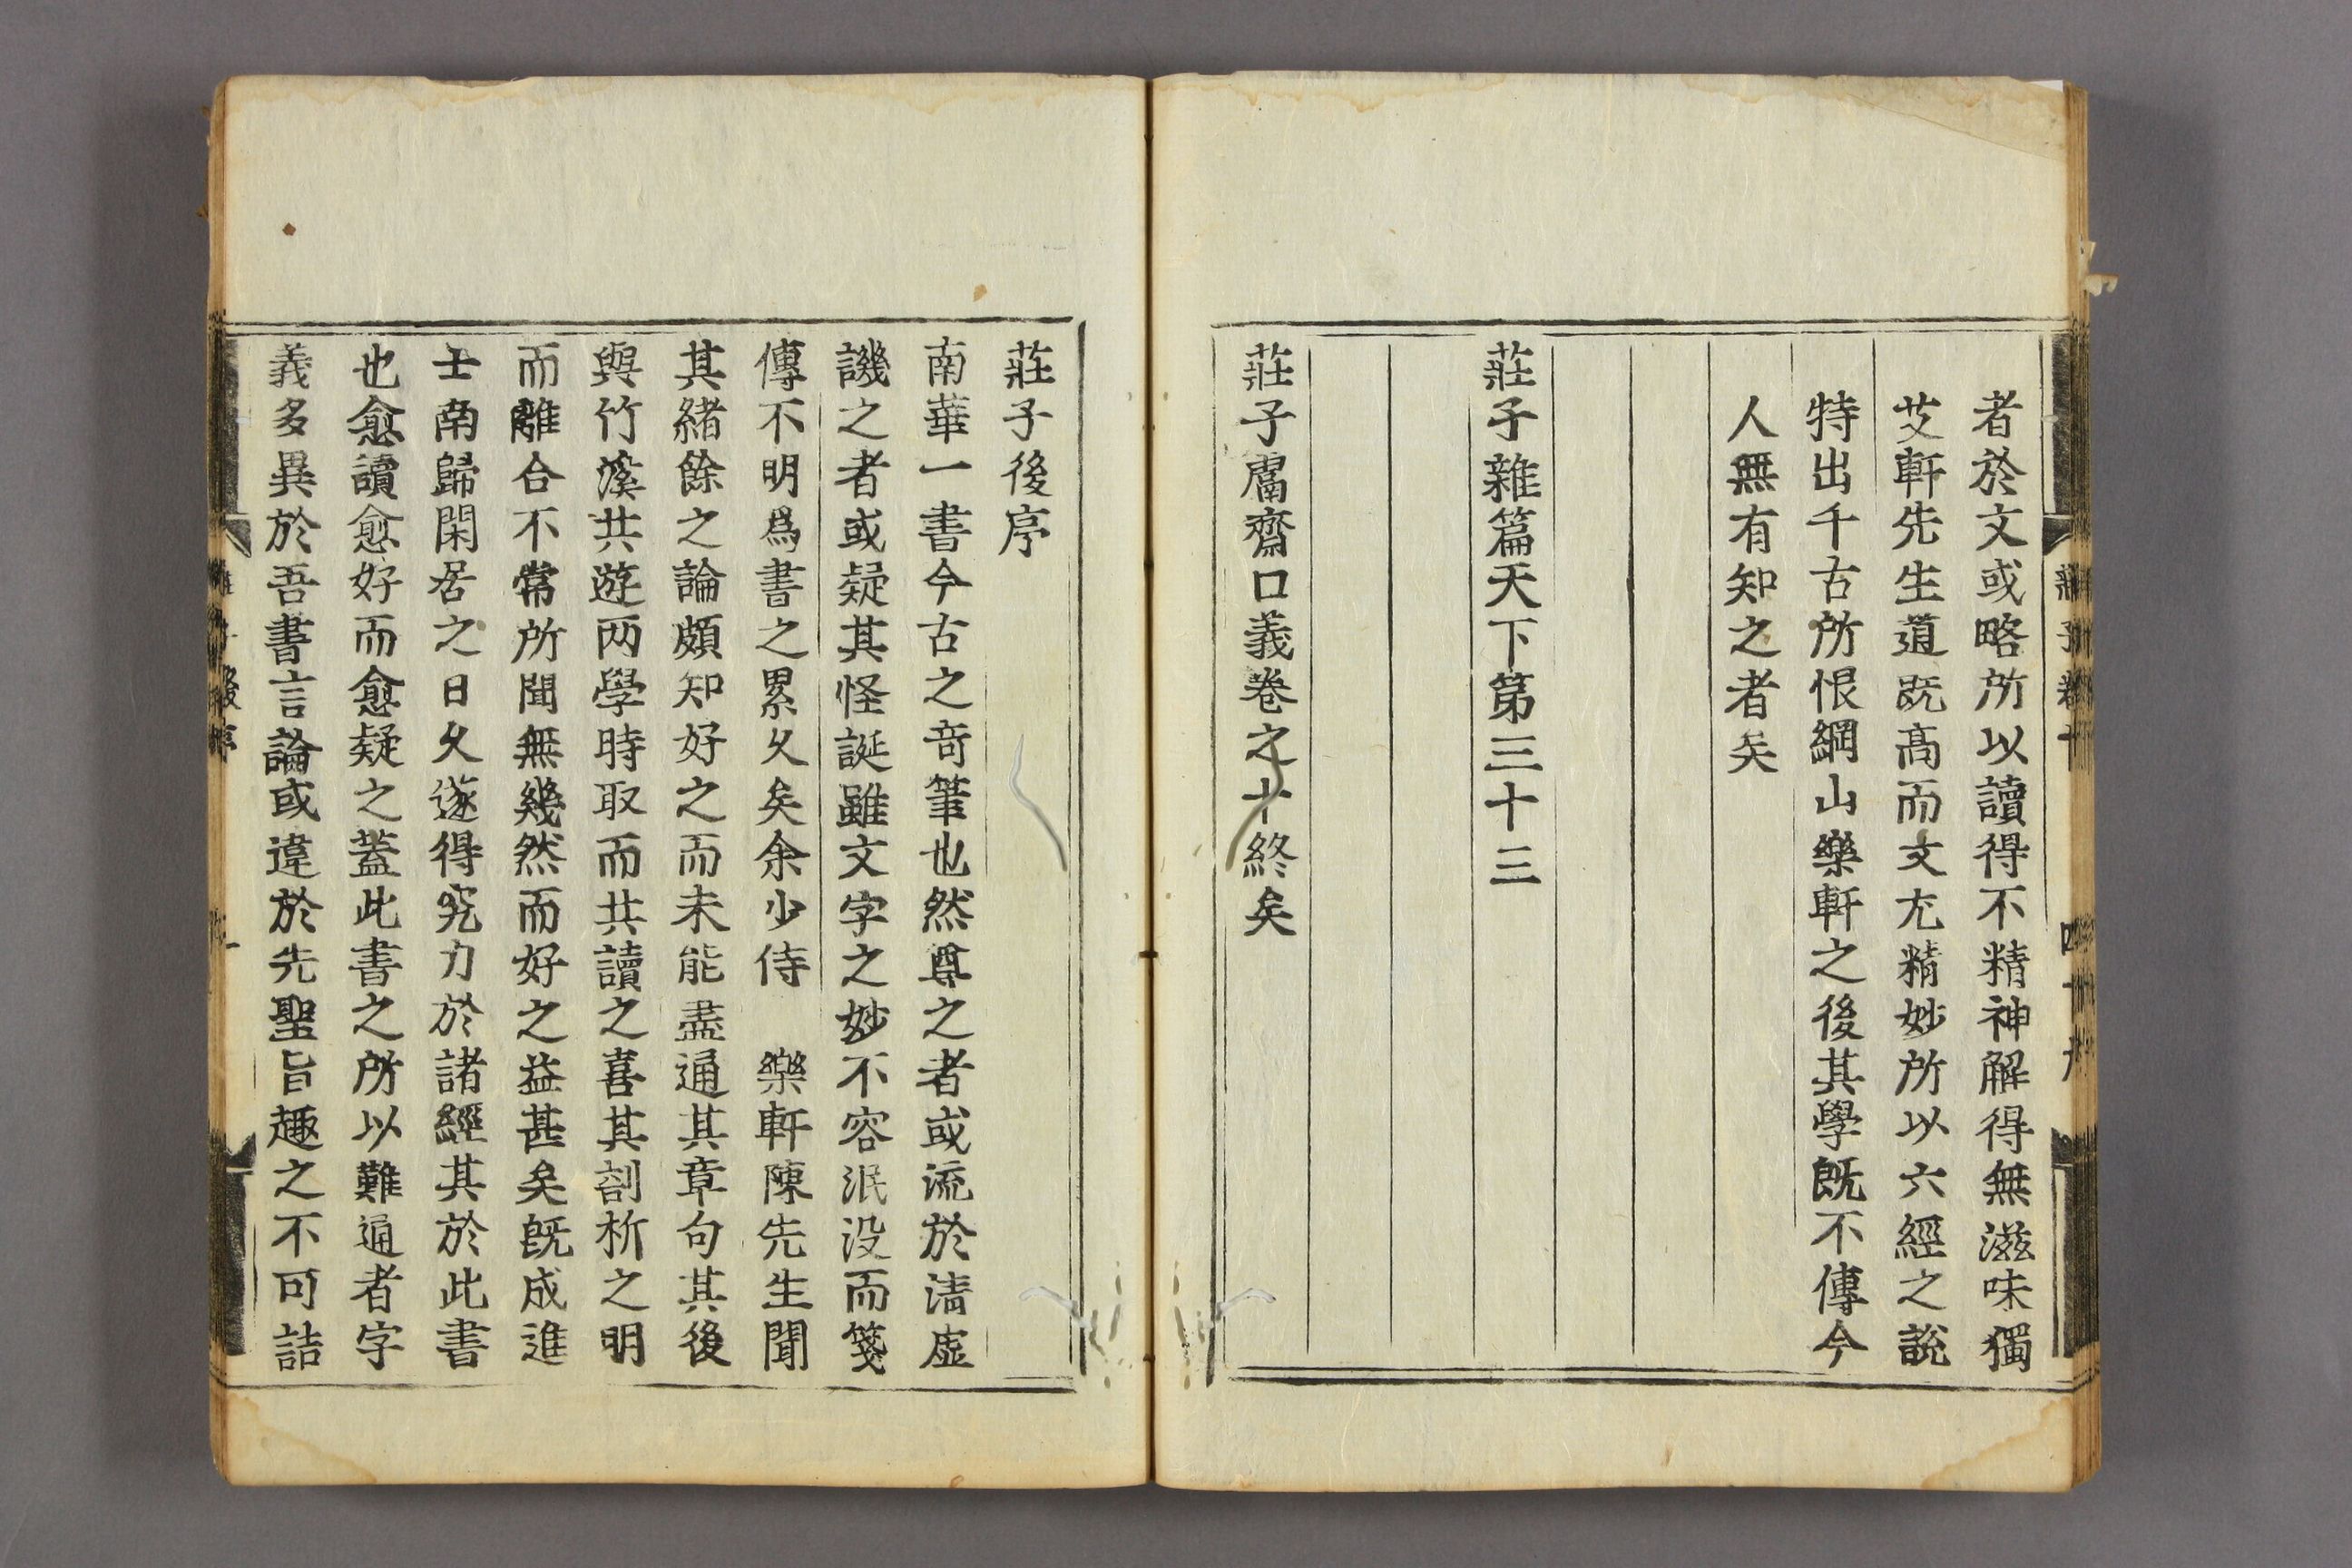 者於文或略所以讀得不精神解得無滋味獨
艾軒先生道既高而文尤精妙所以六經之說
特出千古所恨綱山樂軒之後其學既不傳今
人無有知之者矣
莊子雜篇天下第三十三
莊子鬳齋口義卷之十終矣
莊子後序
南華一書今古之奇筆也然尊之者或流於清虛
譏之者或疑其怪誕雖文字之妙不容泯没而箋
傳不明爲書之累久矣余少侍　樂軒陳先生聞
其緒餘之論頗知好之而未能盡通其章句其後
與竹溪共遊两學時取而共讀之喜其剖析之明
而離合不常所聞無幾然而好之益甚矣既成進
士南歸閑居之日久遂得究力於諸經其於此書
也愈讀愈好而愈疑之蓋此書之所以難通者字
義多異於吾書言論或違於先聖旨趣之不可詰